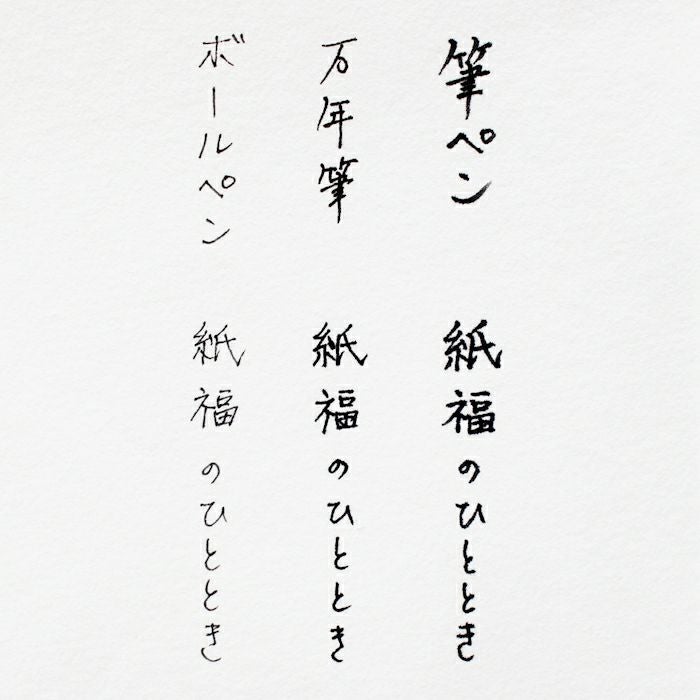 筆ペン
紙福のひととき
万年筆
紙福のひととき
ボールペン
紙福のひととき